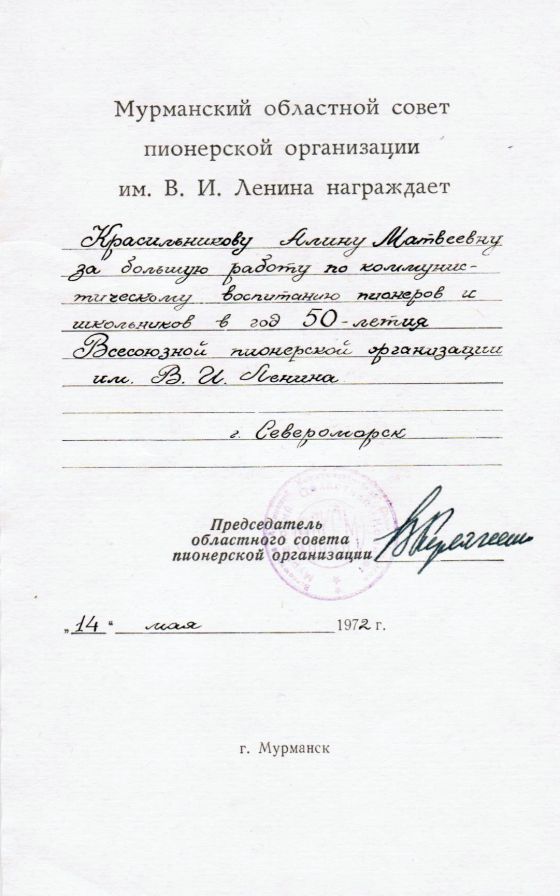 Мурманский областной совет
пионерской организации
им. В. И. Ленина награждает
Красильникову Алину Матвеевну
за большую работу по коммунис-
тическому воспитанию пионеров и
школьников в год 50-летия
Всесоюзной пионерской организации
им. В. И. Ленина
г. Североморск
Председатель
областного совета
пионерской организации
„14“ мая 1972 г.
г. Мурманск